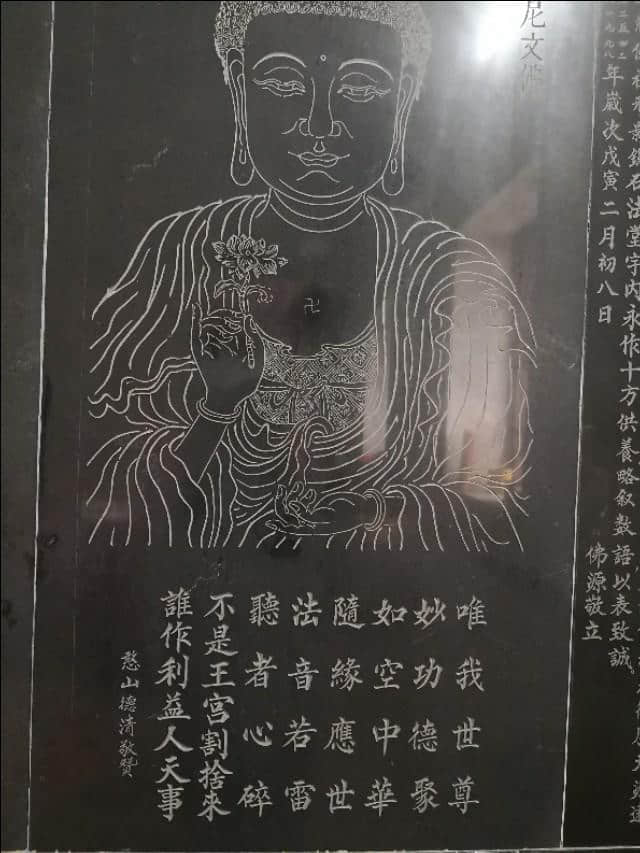 石法堂宇內永作十方供養略叙數語以表致誠
二五四二
一九九八年歲次戊寅二月初八日
佛源敬立
尼文佛
唯我世尊
妙功德聚
如空中華
隨緣應世
法音若雷
聽者心碎
不是王宮割捨來
誰作利益人天事
憨山德清敬贊